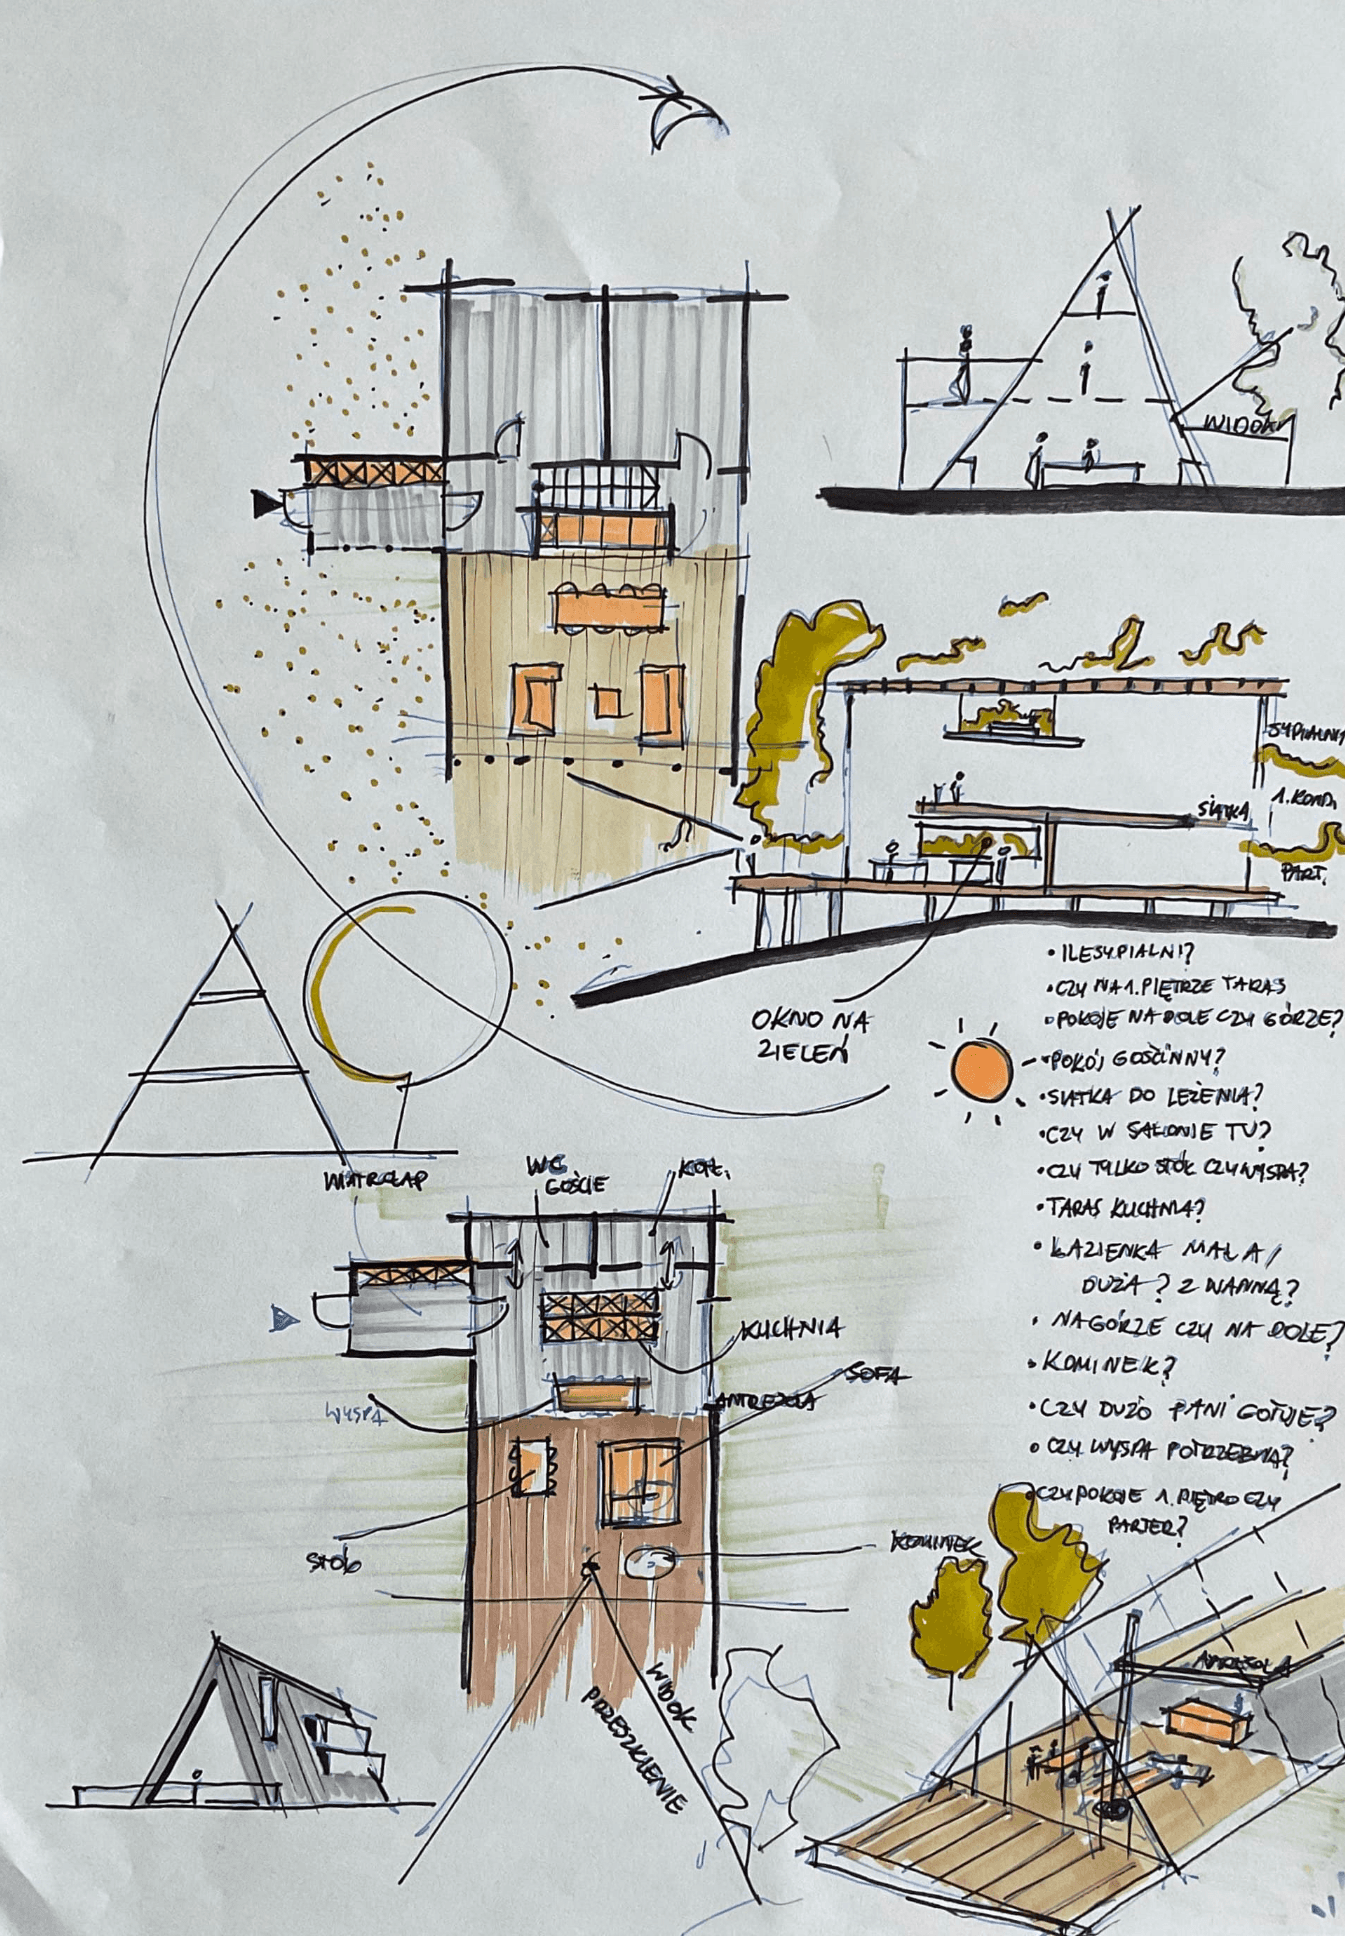 WIDOK
SYPIALNI
SIATKA
1. KOND.
PART.
OKNO NA
ZIELEŃ
• ILE SYPIALNI?
• CZY NA 1. PIĘTRZE TARAS
• POKOJE NA DOLE CZY GÓRZE?
• POKÓJ GOŚCINNY?
• SIATKA DO LEŻENIA?
• CZY W SALONIE TV?
• CZY TYLKO STÓŁ CZY WYSPA?
• TARAS KUCHNIA?
• ŁAZIENKA MAŁA /
DUŻA? Z WANNĄ?
• NA GÓRZE CZY NA DOLE?
• KOMINEK?
• CZY DUŻO PANI GOTUJE?
• CZY WYSPA POTRZEBNA?
• CZY POKOJE 1. PIĘTRO CZY
PARTER?
WIATROŁAP
WC
GOŚCIE
KOTŁ.
KUCHNIA
SOFA
ANTRESOLA
WYSPA
STÓŁ
KOMINEK
WIDOK
PRZESZKLENIE
ANTRESOLA